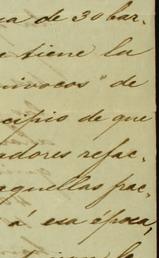 ca de 30 bar-
a tiene la
nivocos" de
cipio de que
adores refac-
aquellas frac-
á esa época,